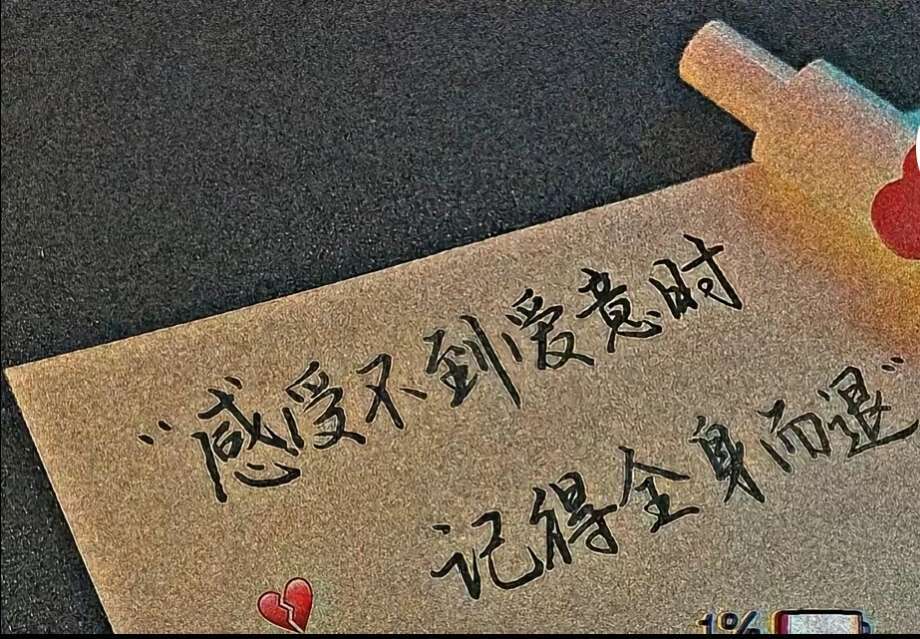 “感受不到爱意时
记得全身而退”
1%